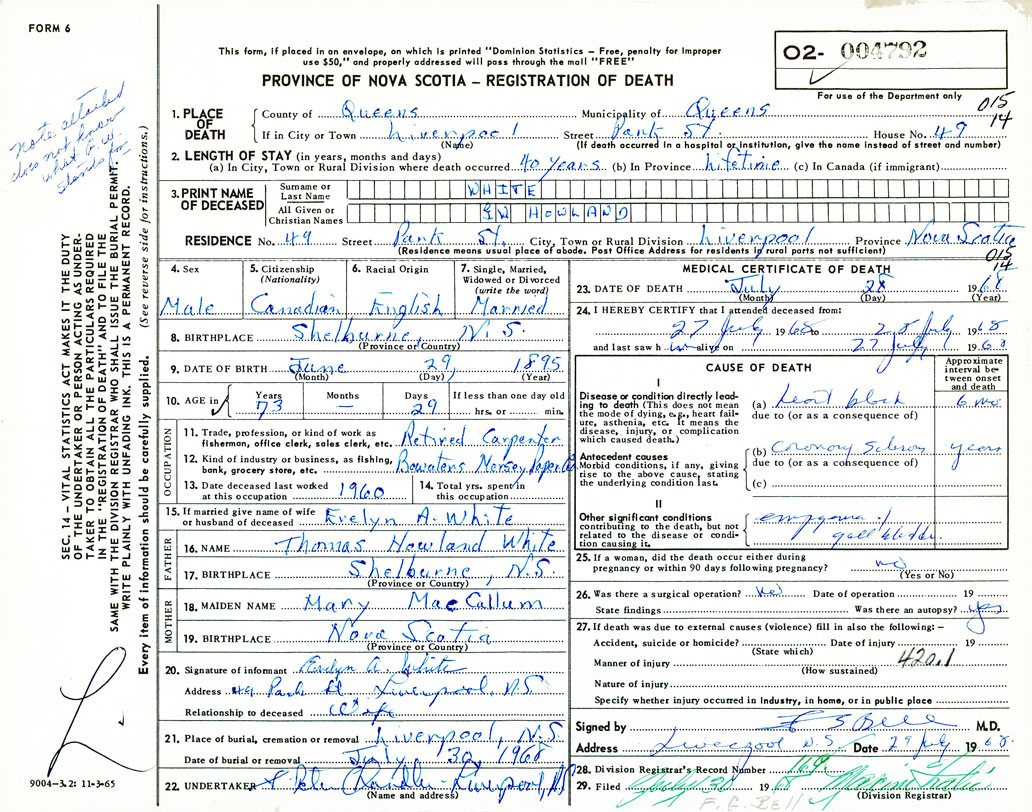 FORM 6
This form, if placed in an envelope, on which is printed "Dominion Statistics – Free, penalty for improper
use $50," and properly addressed will pass through the mail "FREE"
PROVINCE OF NOVA SCOTIA – REGISTRATION OF DEATH
02- 004792
For use of the Department only
015
14
Note attached
does not know
what G.W.
stands for
SEC. 14 – VITAL STATISTICS ACT MAKES IT THE DUTY
OF THE UNDERTAKER OR PERSON ACTING AS UNDER-
TAKER TO OBTAIN ALL THE PARTICULARS REQUIRED
IN THE "REGISTRATION OF DEATH" AND TO FILE THE
SAME WITH THE DIVISION REGISTRAR WHO SHALL ISSUE THE BURIAL PERMIT.
WRITE PLAINLY WITH UNFADING INK. THIS IS A PERMANENT RECORD.
Every item of information should be carefully supplied. (See reverse side for instructions.)
1. PLACE OF DEATH
County of Queens Municipality of Queens
If in City or Town Liverpool Street Park St. House No. 49
(Name) (If death occurred in a hospital or institution, give the name instead of street and number)
2. LENGTH OF STAY (in years, months and days)
(a) In City, Town or Rural Division where death occurred 40 years (b) In Province lifetime (c) In Canada (if immigrant)
3. PRINT NAME OF DECEASED
Surname or Last Name WHITE
All Given or Christian Names GW HOWLAND
RESIDENCE No. 49 Street Park St. City, Town or Rural Division Liverpool Province Nova Scotia
(Residence means usual place of abode. Post Office Address for residents in rural parts not sufficient)
015
14
4. Sex 5. Citizenship (Nationality) 6. Racial Origin 7. Single, Married, Widowed or Divorced (write the word)
Male Canadian English Married
8. BIRTHPLACE Shelburne, N.S.
(Province or Country)
9. DATE OF BIRTH June 29, 1895
(Month) (Day) (Year)
10. AGE in Years Months Days If less than one day old
73 — 29 hrs. or min.
OCCUPATION
11. Trade, profession, or kind of work as fisherman, office clerk, sales clerk, etc. Retired Carpenter
12. Kind of industry or business, as fishing, bank, grocery store, etc. Bowaters Mersey Paper Co
13. Date deceased last worked at this occupation 1960 14. Total yrs. spent in this occupation
15. If married give name of wife or husband of deceased Evelyn A. White
FATHER
16. NAME Thomas Howland White
17. BIRTHPLACE Shelburne, N.S.
(Province or Country)
MOTHER
18. MAIDEN NAME Mary MacCallum
19. BIRTHPLACE Nova Scotia
(Province or Country)
20. Signature of informant Evelyn A. White
Address 49 Park St, Liverpool, N.S.
Relationship to deceased Wife
21. Place of burial, cremation or removal Liverpool, N.S.
Date of burial or removal July 30, 1968
22. UNDERTAKER Chandler Liverpool, NS
(Name and address)
9004-3.2: 11-3-65
MEDICAL CERTIFICATE OF DEATH
23. DATE OF DEATH July 28 1968
(Month) (Day) (Year)
24. I HEREBY CERTIFY that I attended deceased from:
27 July 1968 to 28 July 1968
and last saw h im alive on 27 July 1968
CAUSE OF DEATH
Approximate interval between onset and death
I
Disease or condition directly leading to death (This does not mean the mode of dying, e.g., heart failure, asthenia, etc. It means the disease, injury, or complication which caused death.)
(a) Heart block 6 mo
due to (or as a consequence of)
Antecedent causes
Morbid conditions, if any, giving rise to the above cause, stating the underlying condition last.
(b) Coronary Scleros years
due to (or as a consequence of)
(c)
II
Other significant conditions contributing to the death, but not related to the disease or condition causing it.
empyema of
gall bladder.
25. If a woman, did the death occur either during pregnancy or within 90 days following pregnancy? no
(Yes or No)
26. Was there a surgical operation? Date of operation 19
State findings Was there an autopsy? yes
27. If death was due to external causes (violence) fill in also the following: –
Accident, suicide or homicide? Date of injury 19
(State which)
Manner of injury 420.1
(How sustained)
Nature of injury
Specify whether injury occurred in Industry, in home, or in public place
Signed by F S Bell M.D.
Address Liverpool N.S. Date 29 July 1968
28. Division Registrar's Record Number 169
29. Filed July 30 1968
(Division Registrar)
F. G. BELL